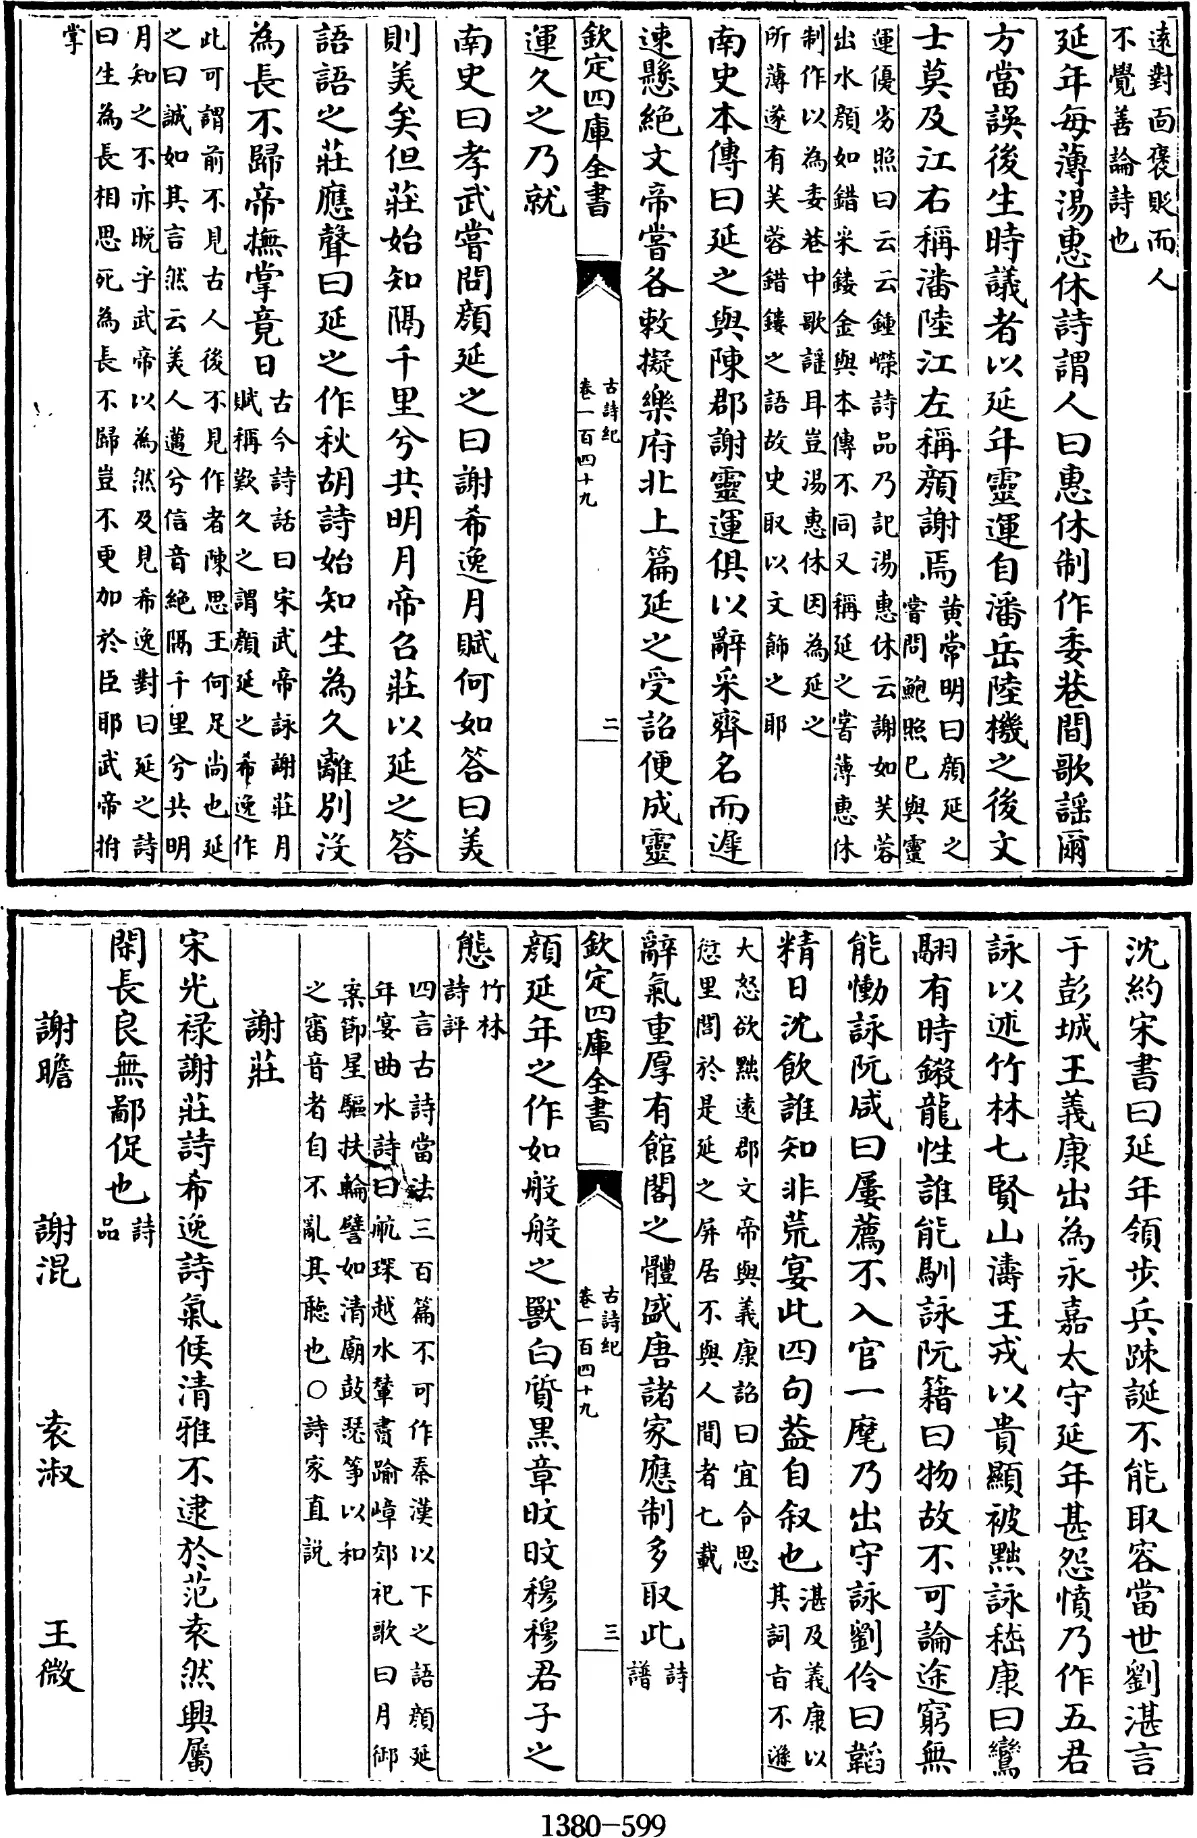 遠對面褒貶而人
不覺善論詩也
延年每薄湯惠休詩謂人曰惠休制作委巷間歌謡爾
方當誤後生時議者以延年靈運自潘岳陸機之後文
士莫及江右稱潘陸江左稱顔謝焉
黄常明曰顔延之
嘗問鮑照已與靈
運優劣照曰云云鍾嶸詩品乃記湯惠休云謝如芙蓉
出水顔如錯采鏤金與本傳不同又稱延之嘗薄惠休
制作以為委巷中歌謡耳豈湯惠休因為延之
所薄遂有芙蓉錯鏤之語故史取以文飾之耶
南史本傳曰延之與陳郡謝靈運俱以辭采齊名而遲
速懸絶文帝嘗各敕擬樂府北上篇延之受詔便成靈
欽定四庫全書
古詩紀
卷一百四十九
二
運久之乃就
南史曰孝武嘗問顔延之曰謝希逸月賦何如答曰美
則美矣但莊始知隔千里兮共明月帝召莊以延之答
語語之莊應聲曰延之作秋胡詩始知生為久離别没
為長不歸帝撫掌竟日
古今詩話曰宋武帝詠謝莊月
賦稱歎久之謂顔延之希逸作
此可謂前不見古人後不見作者陳思王何足尚也延
之曰誠如其言然云美人邁兮信音絶隔千里兮共明
月知之不亦晩乎武帝以為然及見希逸對曰延之詩
曰生為長相思死為長不歸豈不更加於臣耶武帝拊
掌
沈約宋書曰延年領步兵疎誕不能取容當世劉湛言
于彭城王義康出為永嘉太守延年甚怨憤乃作五君
詠以述竹林七賢山濤王戎以貴顯被黜詠嵇康曰鸞
翮有時鎩龍性誰能馴詠阮籍曰物故不可論途窮無
能慟詠阮咸曰屢薦不入官一麾乃出守詠劉伶曰韜
精日沈飲誰知非荒宴此四句葢自叙也
湛及義康以
其詞旨不遜
大怒欲黜遠郡文帝與義康詔曰宜令思
愆里閭於是延之屏居不與人間者七載
辭氣重厚有館閣之體盛唐諸家應制多取此
詩
譜
欽定四庫全書
古詩紀
卷一百四十九
三
顔延年之作如般般之獸白質黒章旼旼穆穆君子之
態
竹林
詩評
四言古詩當法三百篇不可作秦漢以下之語顔延
年宴曲水詩曰航琛越水輦賮踰嶂郊祀歌曰月御
案節星驅扶輪譬如清廟鼓瑟筝以和
之審音者自不亂其聴也○詩家直説
謝莊
宋光禄謝莊詩希逸詩氣候清雅不逮於范袁然興屬
閑長良無鄙促也
詩
品
謝瞻
謝混
袁淑
王微
1380-599